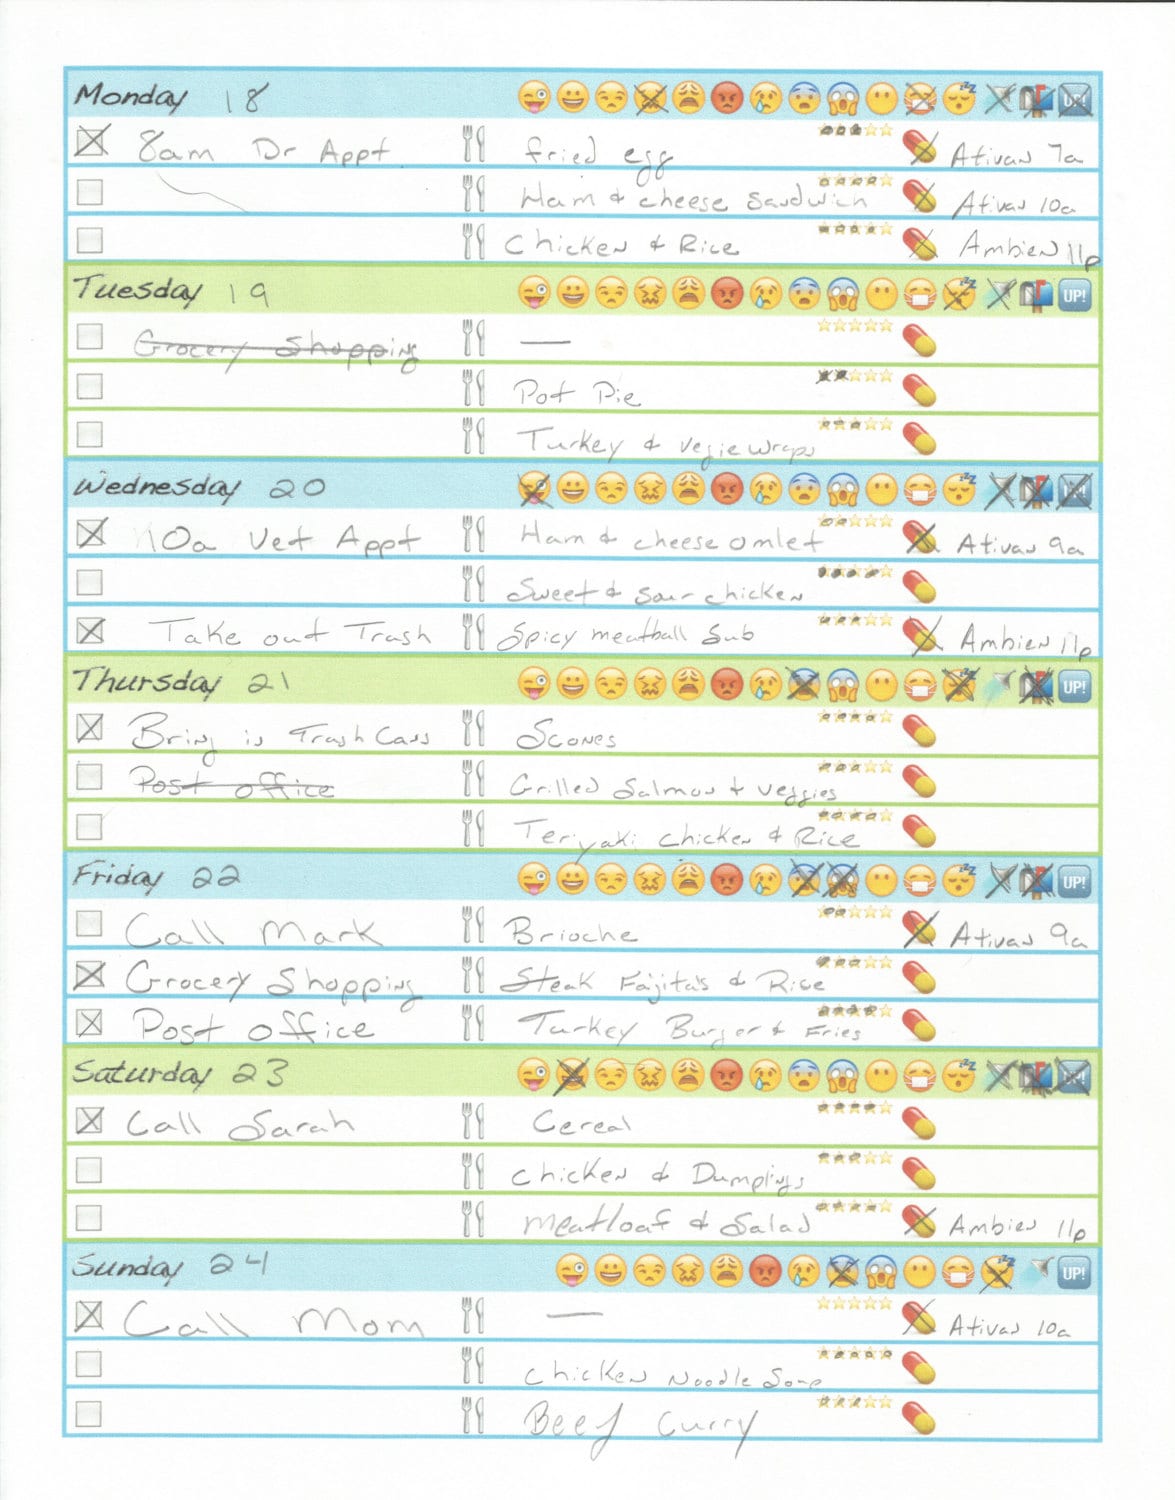 Monday 18
8am Dr Appt fried egg Ativan 7a
Ham & cheese sandwich Ativan 10a
Chicken & Rice Ambien 11p
Tuesday 19 UP!
Grocery Shopping —
Pot Pie
Turkey & vegie wraps
Wednesday 20
10a Vet Appt Ham & cheese omlet Ativan 9a
Sweet & sour chicken
Take out Trash Spicy meatball Sub Ambien 11p
Thursday 21 UP!
Bring in Trash Cans Scones
Post office Grilled Salmon & veggies
Teriyaki Chicken & Rice
Friday 22 UP!
Call Mark Brioche Ativan 9a
Grocery Shopping Steak Fajita's & Rice
Post office Turkey Burger & Fries
Saturday 23
Call Sarah Cereal
Chicken & Dumplings
Meatloaf & Salad Ambien 11p
Sunday 24 UP!
Call Mom — Ativan 10a
Chicken Noodle Soup
Beef Curry